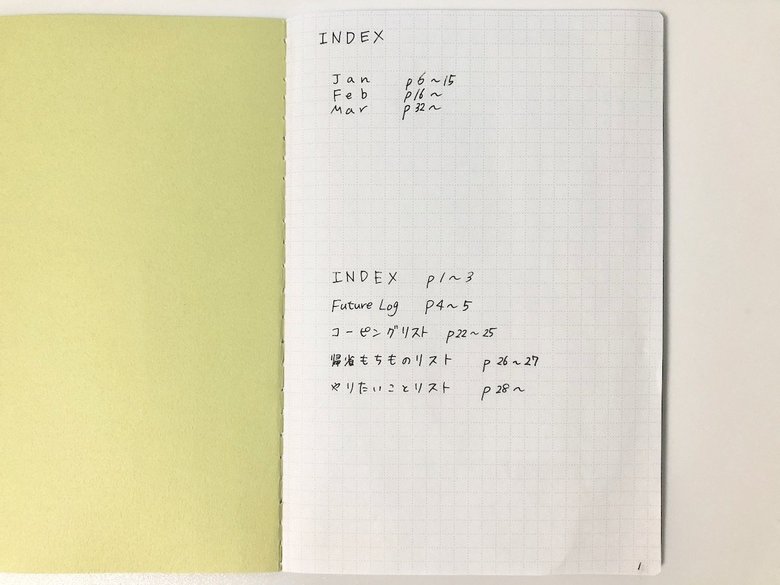 INDEX
Jan p6〜15
Feb p16〜
Mar p32〜
INDEX p1〜3
Future Log p4〜5
コーピングリスト p22〜25
帰省もちものリスト p26〜27
やりたいことリスト p28〜
1